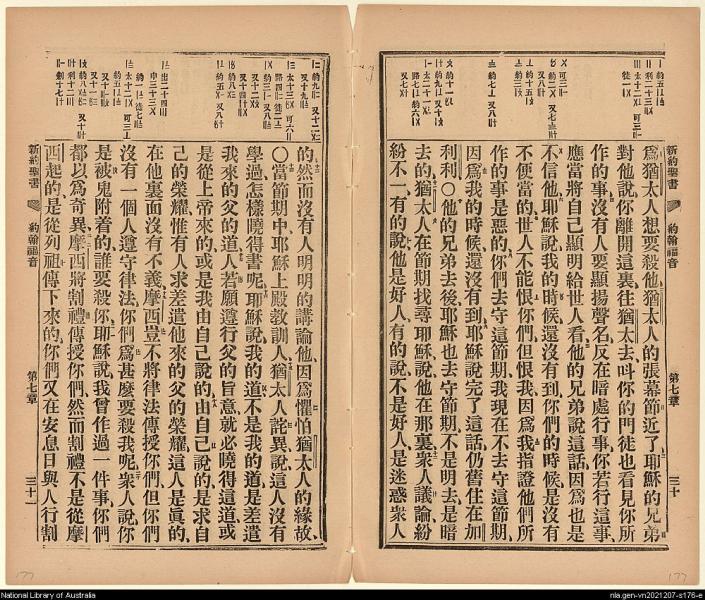 新約聖書
約翰福音
第七章
三十
爲猶太人想要殺他猶太人的張幕節近了耶穌的兄弟
對他說你離開這裏往猶太去叫你的門徒也看見你所
作的事沒有人要顯揚聲名反在暗處行事你若行這事
應當將自己顯明給世人看他的兄弟說這話因爲也是
不信他耶穌說我的時候還沒有到你們的時候是沒有
不便當的世人不能恨你們但恨我因爲我指證他們所
作的事是惡的你們去守這節期我現在不去守這節期
因爲我的時候還沒有到耶穌說完了這話仍舊住在加
利利〇他的兄弟去後耶穌也去守節期不是明去是暗
去的猶太人在節期找尋耶穌說他在那裏衆人議論紛
紛不一有的說他是好人有的說不是好人是迷惑衆人
的然而沒有人明明的講論他因爲懼怕猶太人的緣故
〇當節期中耶穌上殿教訓人猶太人詫異說這人沒有
學過怎樣曉得書呢耶穌說我的道不是我的道是差遣
我來的父的道人若願遵行父的旨意就必曉得這道或
是從上帝來的或是我由自己說的由自己說的是求自
己的榮耀惟有人求差遣他來的父的榮耀這人是眞的
在他裏面沒有不義摩西豈不將律法傳授你們但你們
沒有一個人遵守律法你們爲甚麼要殺我呢衆人說你
是被鬼附着的誰要殺你耶穌說我曾作過一件事你們
都以爲奇異摩西將割禮傳授你們然而割禮不是從摩
西起的是從列祖傳下來的你們又在安息日與人行割
新約聖書
約翰福音
第七章
三十一
National Library of Australia
nla.gen-vn2021207-s176-e